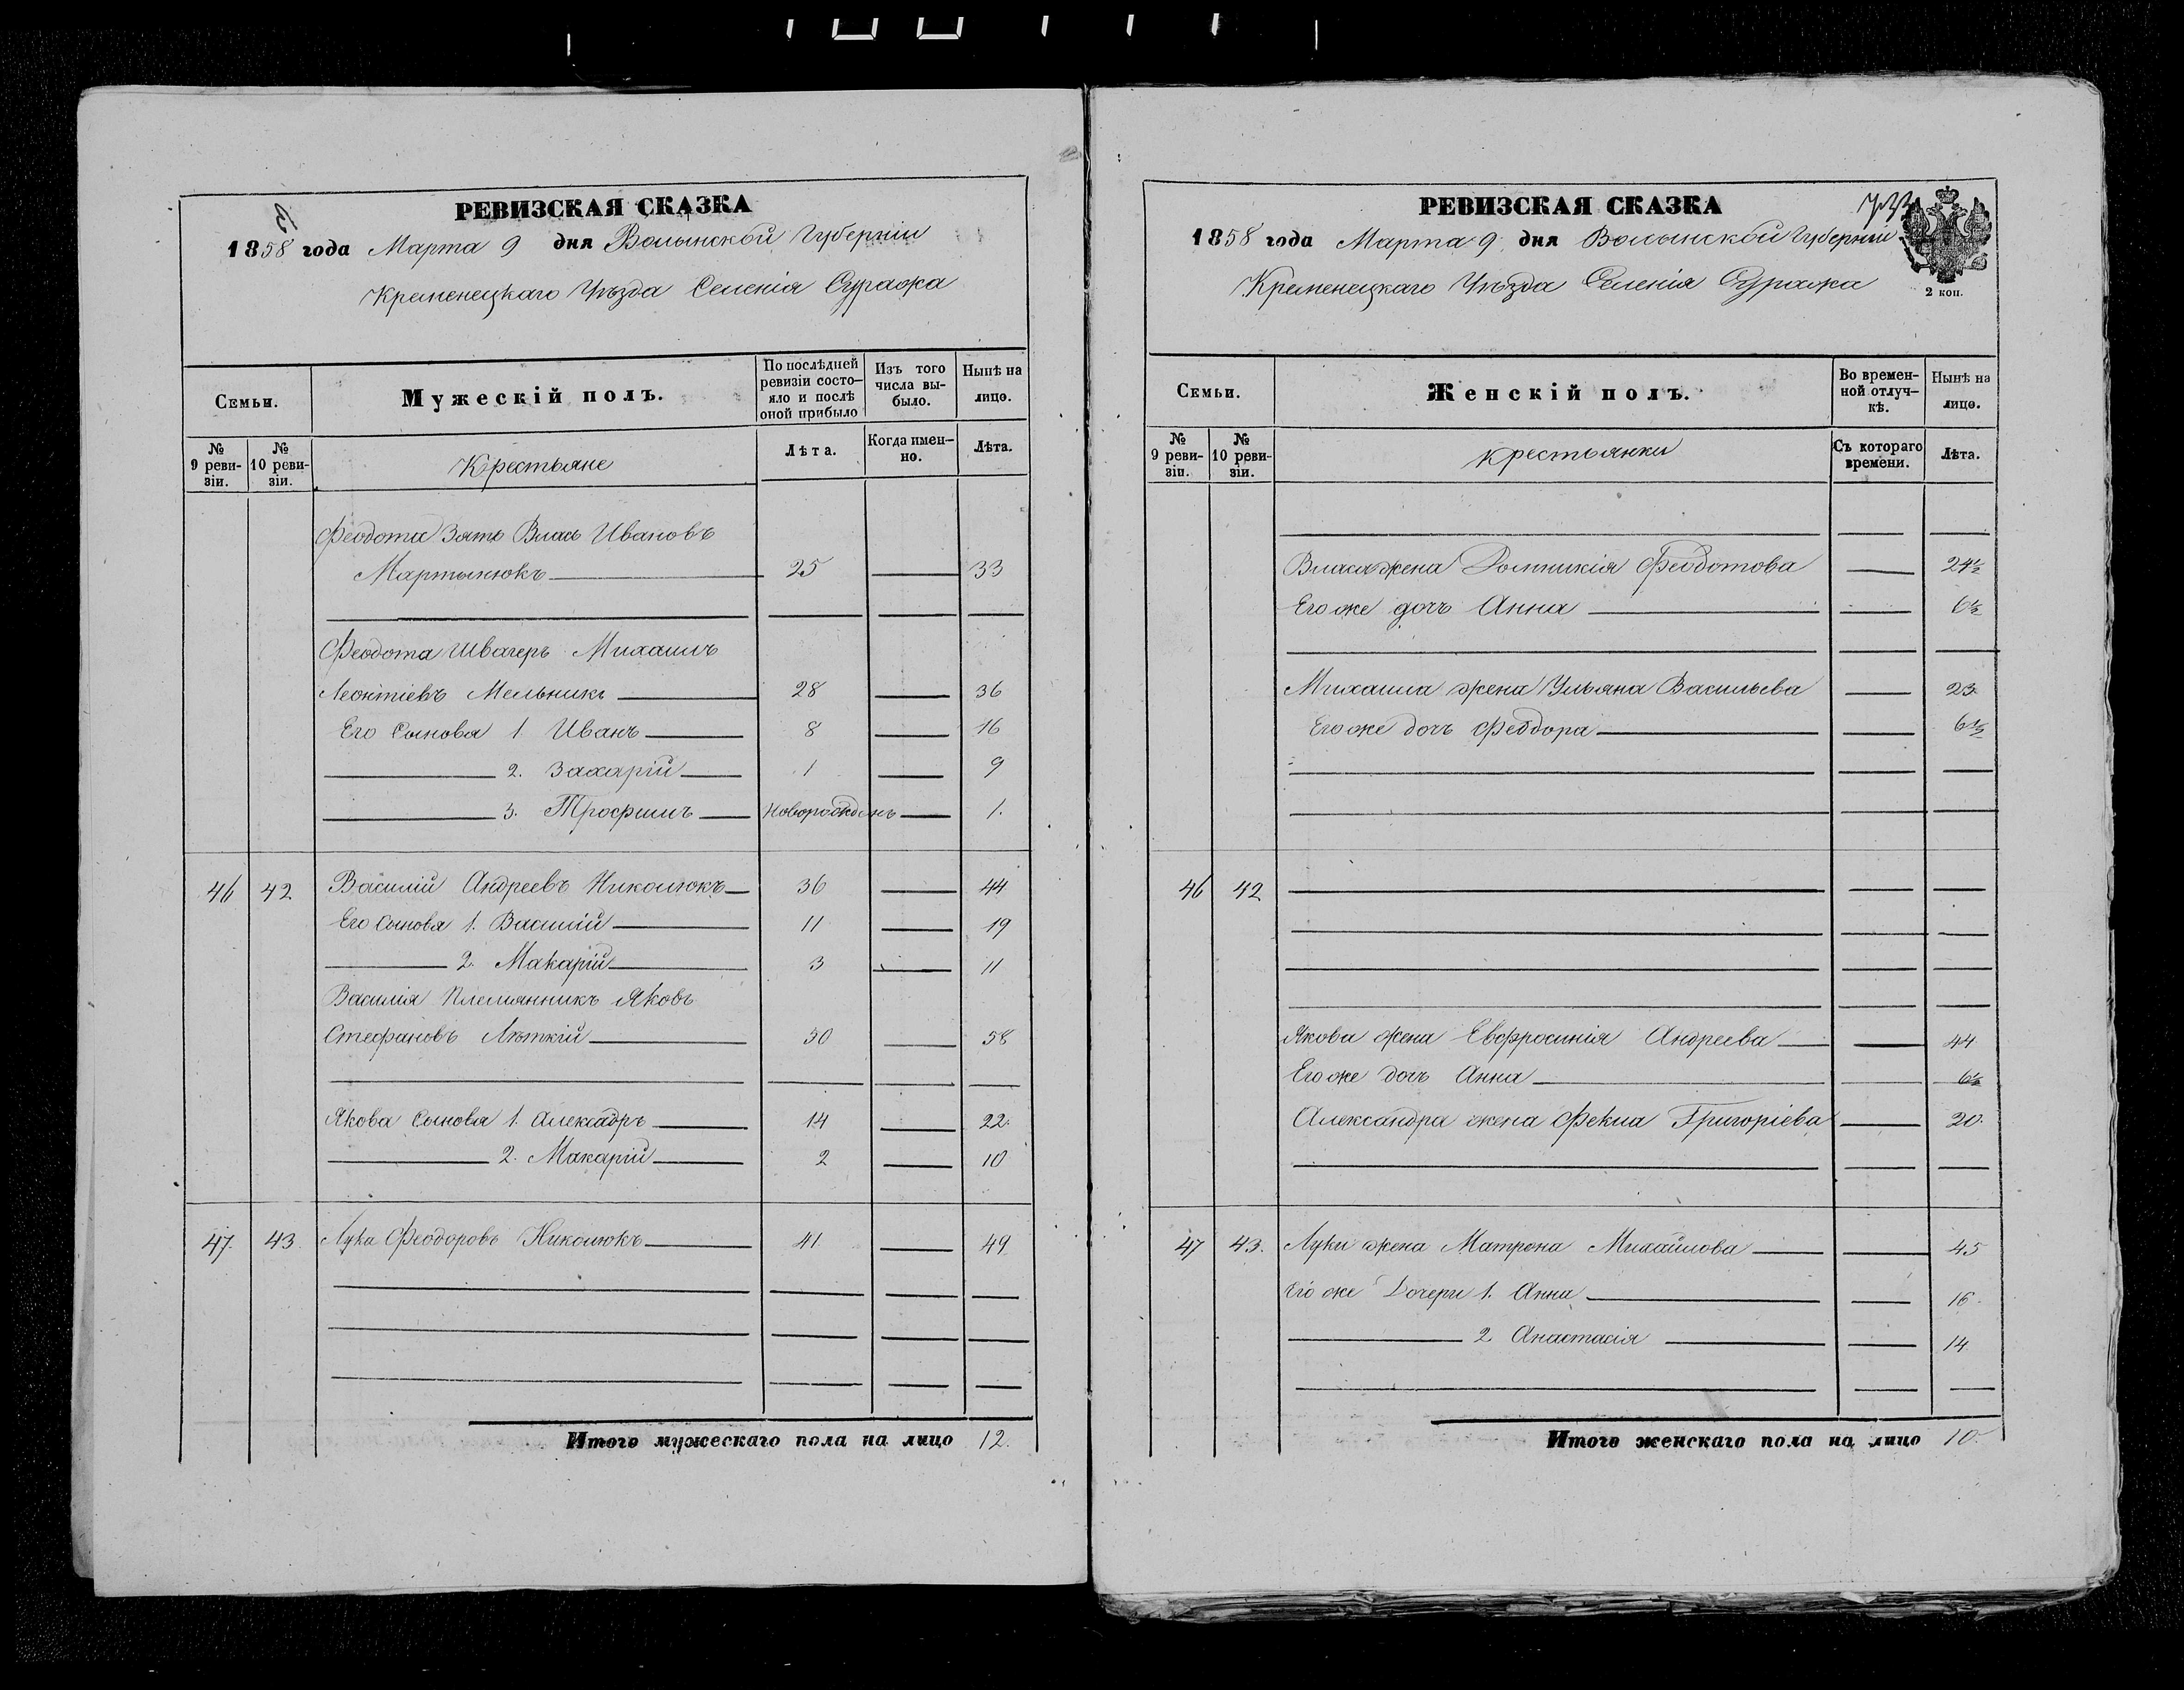 РЕВИЗСКАЯ СКАЗКА
1858 года Марта 9 дня Волынской Губерніи
Кременецкаго Уѣзда Селенія Суража
Семьи. Мужескій полъ. По послѣдней ревизіи состояло и послѣ оной прибыло Изъ того числа выбыло. Нынѣ на лицо.
№ 9 ревизіи. № 10 ревизіи. Крестьяне Лѣта. Когда именно. Лѣта.
Феодота Зять Власъ Ивановъ
Мартынюкъ 25 33
Феодота Швагеръ Михаилъ
Леонтіевъ Мельникъ 28 36
Его Сыновья 1 Иванъ 8 16
2. Захарій 1 9
3. Трофимъ Новорожденъ 1.
46 42 Василій Андреевъ Николюкъ 36 44
Его Сыновья 1. Василій 11 19
2. Макарій 3 11
Василія Племянникъ Яковъ
Стефановъ Лѣткій 50 58
Якова Сыновья 1. Алексадръ 14 22.
2. Макарій 2 10
47. 43. Лука Феодоровъ Николюкъ 41 49
Итого мужескаго пола на лицо 12.
РЕВИЗСКАЯ СКАЗКА
1858 года Марта 9 дня Волынской Губерніи
Кременецкаго Уѣзда Селенія Суража
2 коп.
Семьи. Женскій полъ. Во временной отлучкѣ. Нынѣ на лицо.
№ 9 ревизіи. № 10 ревизіи. крестьянки Съ котораго времени. Лѣта.
Власа жена Домникія Феодотова 24½
Его же дочь Анна 6½
Михаила жена Ульяна Васильева 23.
Его же дочь Феодора 6½
46 42
Якова жена Евфросинія Андреева 44
Его же дочь Анна 6½
Александра жена Фекла Григоріева 20.
47 43. Луки жена Матрона Михайлова 45
Его же Дочери 1. Анна 16.
2 Анастасія 14
Итого женскаго пола на лицо 10.